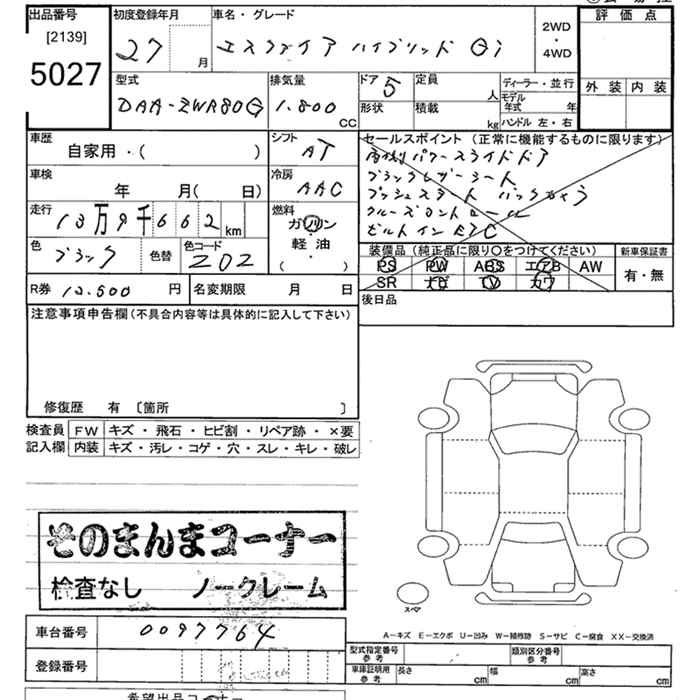 出品番号
[2139]
5027
初度登録年月
27 月
車名・グレード
エスクァイア ハイブリッド Gi
2WD
・
4WD
評価点
外装 内装
型式
DAA-ZWR80G
排気量
1.800 CC
ドア 5
形状
定員 人
積載 kg
ディーラー・並行
モデル年式 年
ハンドル 左・右
車歴
自家用・( )
シフト
AT
車検
年 月( 日)
冷房
AAC
走行
13万9千662 km
燃料
ガソリン
軽油
( ・ )
色
ブラック
色替
色コード
202
R券 12.500 円
名変期限 月 日
セールスポイント (正常に機能するものに限ります)
両側パワースライドドア
ブラックレザーシート
プッシュスタート バックカメラ
クルーズコントロール
ビルトインETC
装備品(純正品に限り○をつけてください)
PS PW ABS エアB AW
SR ナビ TV カワ
新車保証書
有・無
後日品
注意事項申告欄(不具合内容等は具体的に記入して下さい)
修復歴 有 〔箇所 〕
検査員記入欄
FW キズ・飛石・ヒビ割・リペア跡・×要
内装 キズ・汚レ・コゲ・穴・スレ・キレ・破レ
そのまんまコーナー
検査なし ノークレーム
スペア
車台番号 0097764
登録番号
A-キズ E-エクボ U-凹み W-補修跡 S-サビ C-腐食 XX-交換済
型式指定番号 参考
類別区分番号 参考
車庫証明用 参考
長さ cm 幅 cm 高さ cm
希望出品コーナー